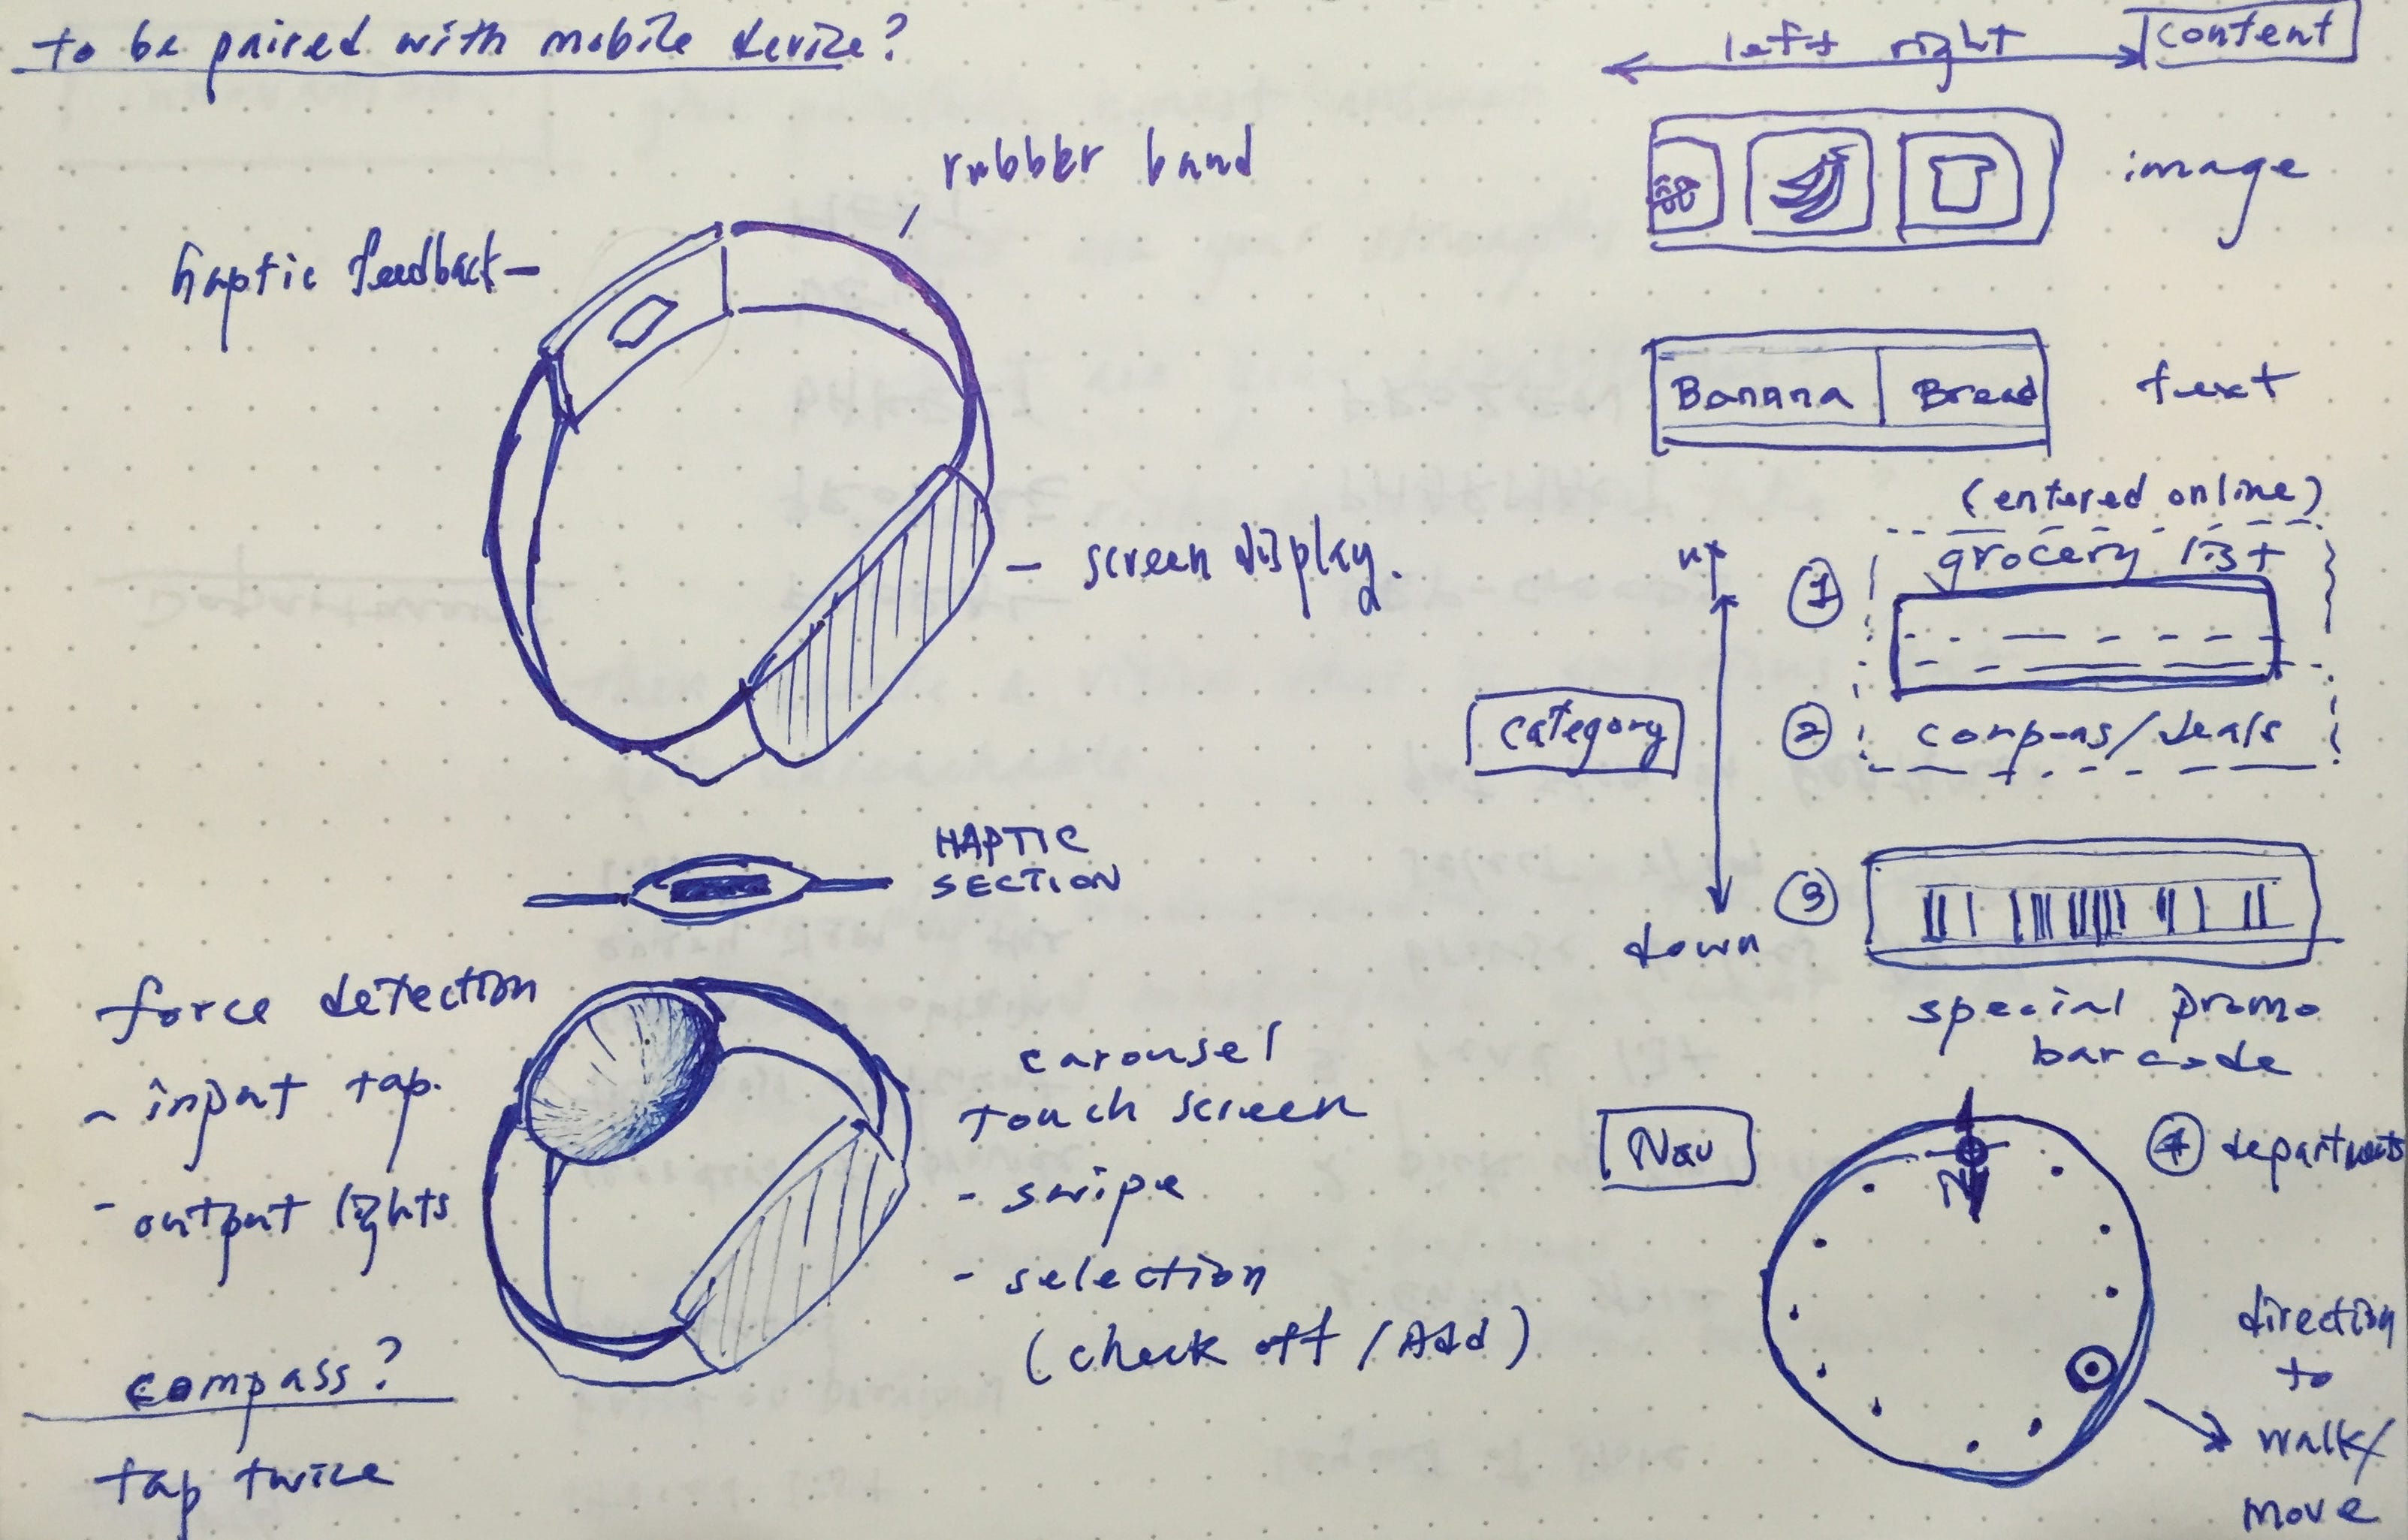 to be paired with mobile device?
haptic feedback-
rubber band
- screen display.
HAPTIC
SECTION
force detection
- input tap.
- output lights
carousel
touch screen
- swipe
- selection
(check off / Add)
compass?
tap twice
left right
content
image
Banana
Bread
text
(entered online)
up
1
grocery list
category
2
coupons/deals
3
down
special promo
barcode
Nav
N
4 departments
direction
to
walk/
move